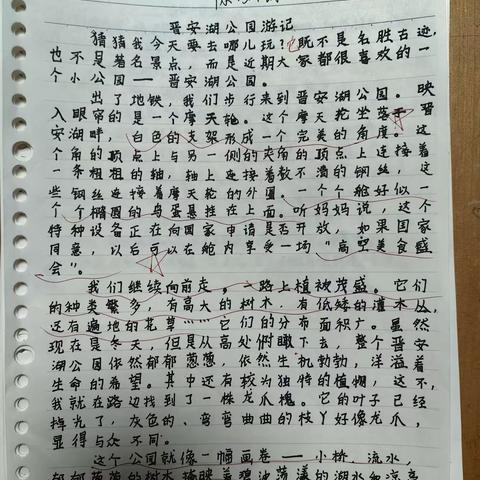 晋安湖公园游记
猜猜我今天要去哪儿玩?既不是名胜古迹,
也不是著名景点,而是近期大家都很喜欢的一
个小公园——晋安湖公园。
出了地铁,我们步行来到晋安湖公园。映
入眼帘的是一个摩天轮。这个摩天轮坐落于晋
安湖畔,白色的支架形成一个完美的角度。这
个角的顶点上与另一侧的夹角的顶点上连接着
一条粗粗的轴,轴上连接着数不清的钢丝,这
些钢丝连接着摩天轮的外圈,一个个舱好似一
个个椭圆的鸟蛋悬挂在上面。听妈妈说,这个
特种设备正在向国家申请是否开放,如果国家
同意,以后可以在舱内享受一场“高空美食盛
会”。
我们继续向前走。一路上植被茂盛。它们
的种类繁多,有高大的树木,有低矮的灌木丛,
还有遍地的花草……它们的分布面积广。虽然
现在是冬天,但是从高处俯瞰下去,整个晋安
湖公园依然郁郁葱葱,依然生机勃勃,洋溢着
生命的希望。其中还有较为独特的植物,这不,
我就在路边找到了一株龙爪槐。它的叶子已经
掉光了,灰色的、弯弯曲曲的枝丫好像龙爪,
显得与众不同。
这个公园就像一幅画卷——小桥,流水,
郁郁葱葱的树木掩映着碧波荡漾的湖水和凉亭